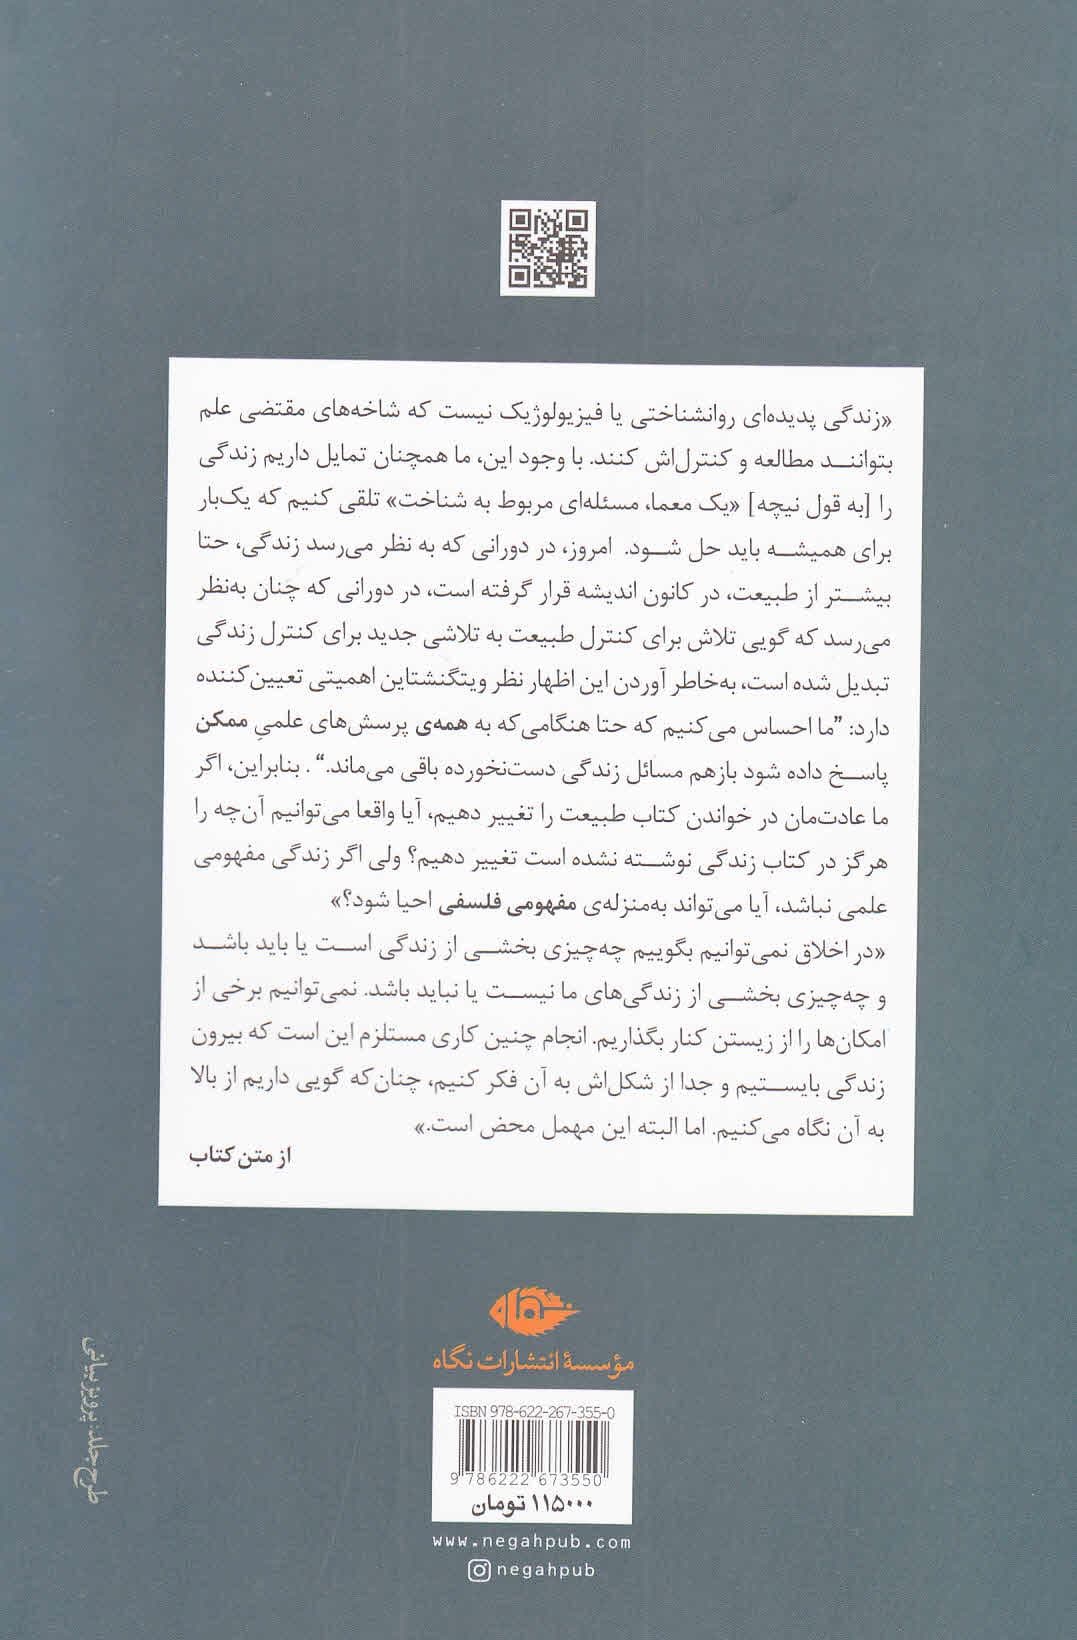 «زندگی پدیده‌ای روانشناختی یا فیزیولوژیک نیست که شاخه‌های مقتضی علم
بتوانند مطالعه و کنترل‌اش کنند. با وجود این، ما همچنان تمایل داریم زندگی
را [به قول نیچه] «یک معما، مسئله‌ای مربوط به شناخت» تلقی کنیم که یک‌بار
برای همیشه باید حل شود. امروز، در دورانی که به نظر می‌رسد زندگی، حتا
بیشتر از طبیعت، در کانون اندیشه قرار گرفته است، در دورانی که چنان به‌نظر
می‌رسد که گویی تلاش برای کنترل طبیعت به تلاشی جدید برای کنترل زندگی
تبدیل شده است، به‌خاطر آوردن این اظهار نظر ویتگنشتاین اهمیتی تعیین‌کننده
دارد: ”ما احساس می‌کنیم که حتا هنگامی‌که به همه‌ی پرسش‌های علمیِ ممکن
پاسخ داده شود بازهم مسائل زندگی دست‌نخورده باقی می‌ماند.“ . بنابراین، اگر
ما عادت‌مان در خواندن کتاب طبیعت را تغییر دهیم، آیا واقعا می‌توانیم آن‌چه را
هرگز در کتاب زندگی نوشته نشده است تغییر دهیم؟ ولی اگر زندگی مفهومی
علمی نباشد، آیا می‌تواند به‌منزله‌ی مفهومی فلسفی احیا شود؟»
«در اخلاق نمی‌توانیم بگوییم چه‌چیزی بخشی از زندگی است یا باید باشد
و چه‌چیزی بخشی از زندگی‌های ما نیست یا نباید باشد. نمی‌توانیم برخی از
امکان‌ها را از زیستن کنار بگذاریم. انجام چنین کاری مستلزم این است که بیرون
زندگی بایستیم و جدا از شکل‌اش به آن فکر کنیم، چنان‌که گویی داریم از بالا
به آن نگاه می‌کنیم. اما البته این مهمل محض است.»
از متن کتاب
نگاه
مؤسسهٔ انتشارات نگاه
ISBN 978-622-267-355-0
9 786222 673550
۱۱۵۰۰۰ تومان
www.negahpub.com
negahpub
طرح جلد: پرویز بیانی